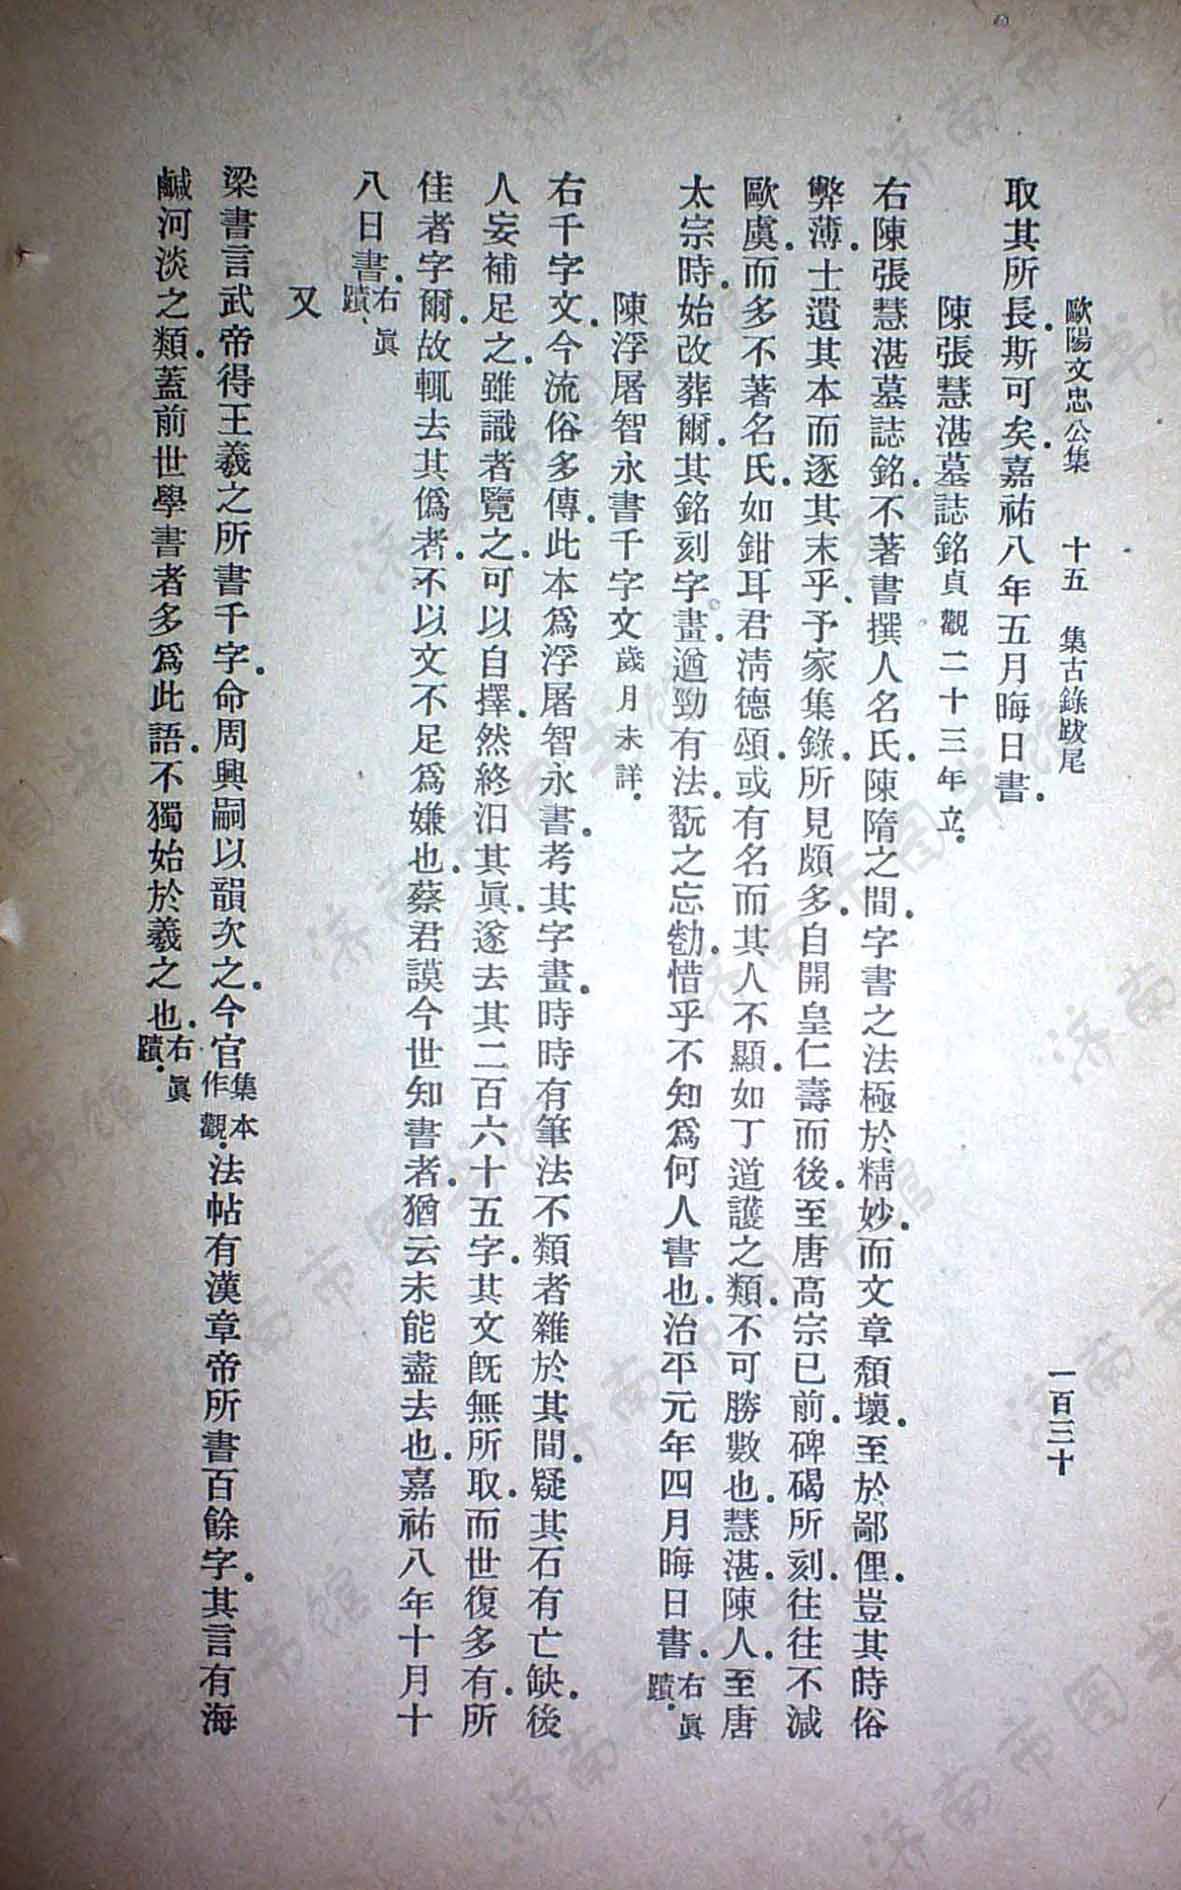 歐陽文忠公集　十五　集古錄跋尾　一百三十
取其所長.斯可矣.嘉祐八年五月晦日書.
陳張慧湛墓誌銘貞觀二十三年立.
右陳張慧湛墓誌銘.不著書撰人名氏.陳隋之間.字書之法極於精妙.而文章頹壞.至於鄙俚.豈其時俗
弊薄.士遺其本而逐其末乎.予家集錄.所見頗多.自開皇仁壽而後.至唐高宗已前.碑碣所刻.往往不減
歐虞.而多不著名氏.如鉗耳君淸德頌.或有名而其人不顯.如丁道護之類.不可勝數也.慧湛.陳人.至唐
太宗時.始改葬爾.其銘刻字畫.遒勁有法.翫之忘勌.惜乎不知爲何人書也.治平元年四月晦日書.右眞蹟.
陳浮屠智永書千字文歲月未詳.
右千字文.今流俗多傳.此本爲浮屠智永書.考其字畫.時時有筆法不類者雜於其間.疑其石有亡缺.後
人妄補足之.雖識者覽之.可以自擇.然終汨其眞.遂去其二百六十五字.其文旣無所取.而世復多有.所
佳者字爾.故輒去其僞者.不以文不足爲嫌也.蔡君謨今世知書者.猶云未能盡去也.嘉祐八年十月十
八日書.右眞蹟.
又
梁書言武帝得王羲之所書千字.命周興嗣以韻次之.今官集本作觀.法帖有漢章帝所書百餘字.其言有海
鹹河淡之類.蓋前世學書者多爲此語.不獨始於羲之也.右眞蹟.